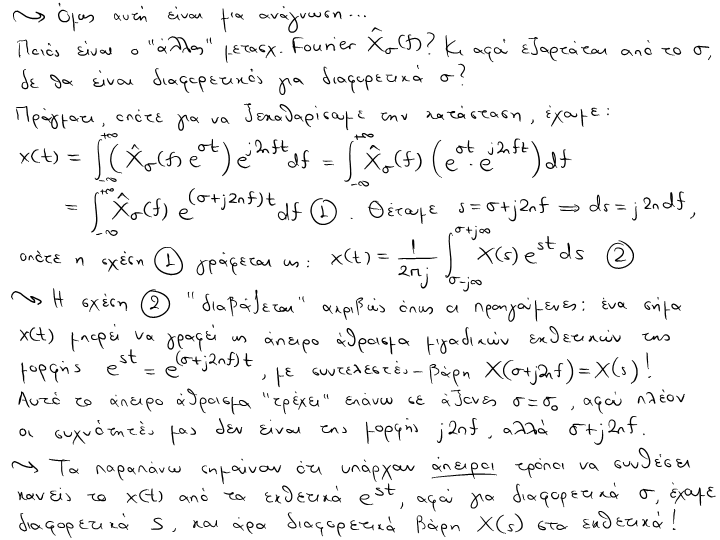 ⤳ Όμως αυτή είναι μια ανάγνωση...
Ποιός είναι ο "άλλος" μετασχ. Fourier X̂σ(f)? Κι αφού εξαρτάται από το σ,
δε θα είναι διαφορετικός για διαφορετικά σ?
Πράγματι, οπότε για να ξεκαθαρίσουμε την κατάσταση, έχουμε:
x(t) = ∫_{-∞}^{+∞} (X̂σ(f) e^{σt}) e^{j2πft} df = ∫_{-∞}^{+∞} X̂σ(f) (e^{σt} · e^{j2πft}) df
= ∫_{-∞}^{+∞} X̂σ(f) e^{(σ+j2πf)t} df ①. Θέτουμε s = σ+j2πf ⇒ ds = j2πdf,
οπότε η σχέση ① γράφεται ως: x(t) = \frac{1}{2πj} ∫_{σ-j∞}^{σ+j∞} X(s) e^{st} ds ②
⤳ Η σχέση ② "διαβάζεται" ακριβώς όπως οι προηγούμενες: ένα σήμα
x(t) μπορεί να γραφεί ως άπειρο άθροισμα μιγαδικών εκθετικών της
μορφής e^{st} = e^{(σ+j2πf)t}, με συντελεστές-βάρη X(σ+j2πf) = X(s)!
Αυτό το άπειρο άθροισμα "τρέχει" επάνω σε άξονες σ=σ₀, αφού πλέον
οι συχνότητές μας δεν είναι της μορφής j2πf, αλλά σ+j2πf.
⤳ Τα παραπάνω σημαίνουν ότι υπάρχουν άπειροι τρόποι να συνθέσει
κανείς το x(t) από τα εκθετικά e^{st}, αφού για διαφορετικά σ, έχουμε
διαφορετικά s, και άρα διαφορετικά βάρη X(s) στα εκθετικά!